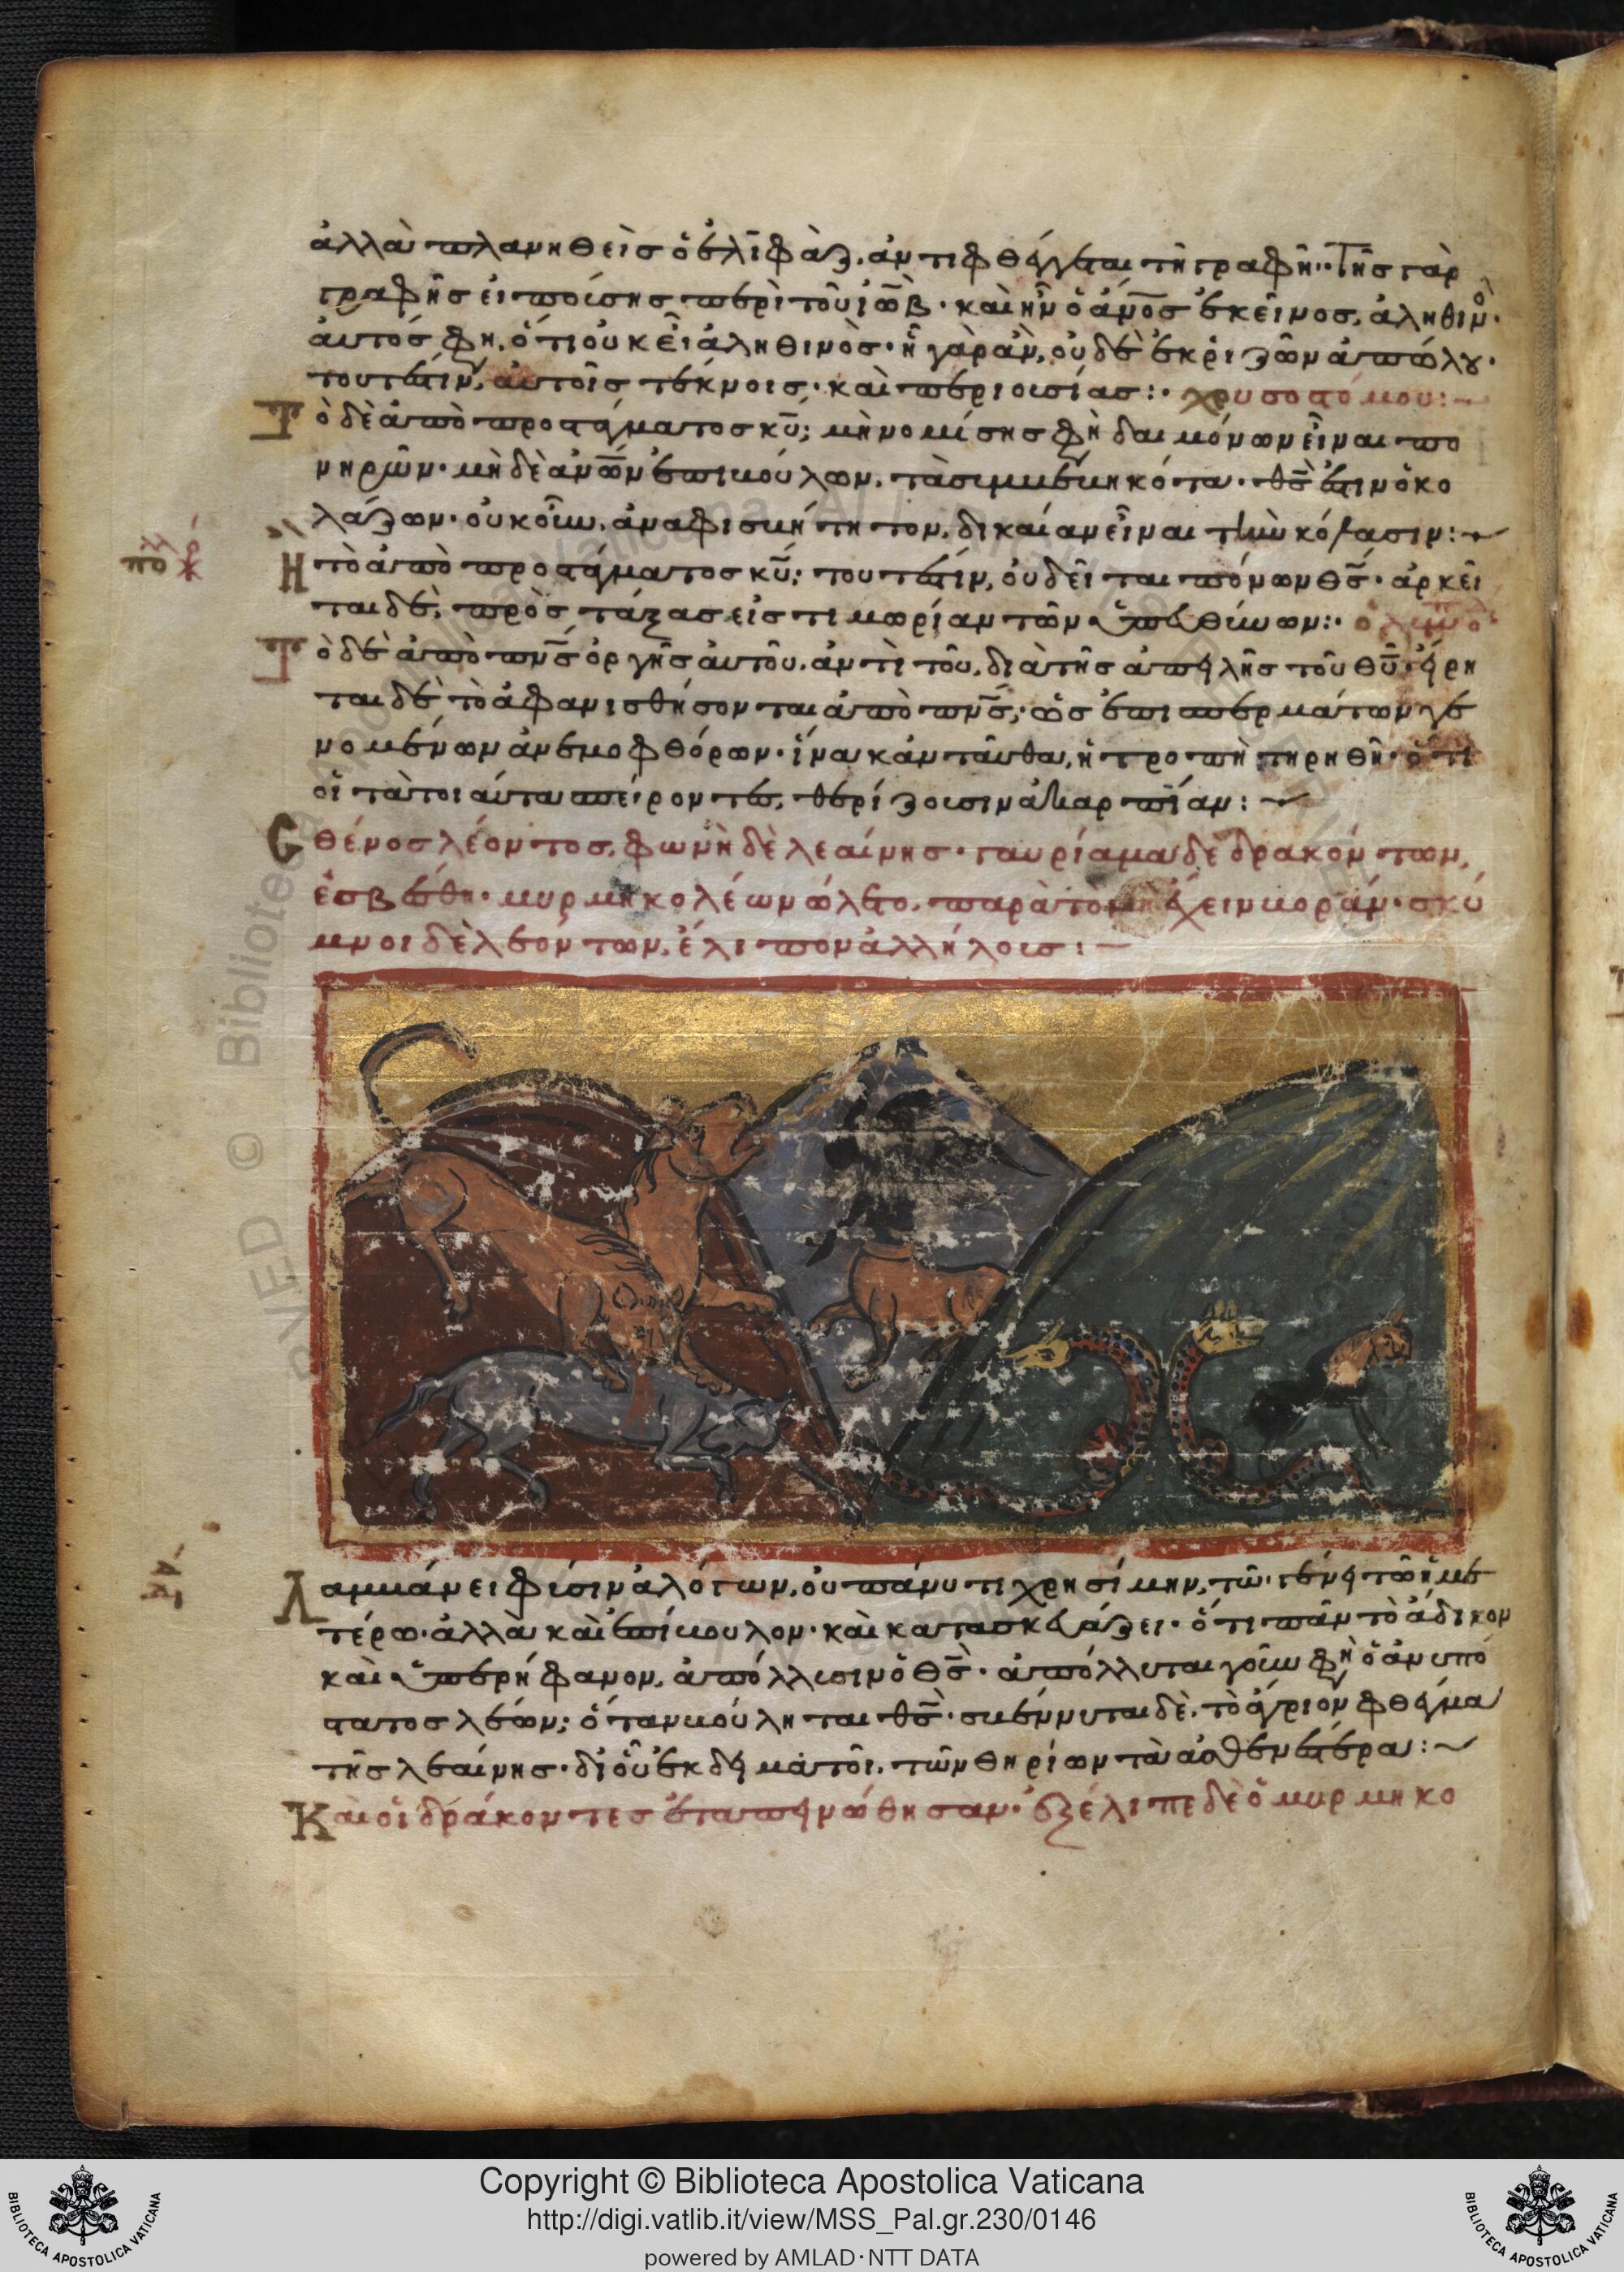 ἀλλὰ πλανηθεὶσ ὁ ἐλῑφὰζ, ἀντιφθέγγεται τῆ γραφῆ·· Τῆσ γὰρ
γραφῆσ εἰποίσησ περὶ τοῦ ἰὼβ· καὶ ἦν ὁ ἀν̅οσ ἐκεῖνοσ, ἀληθιν·
ἀυτόσ φη, ὅτι οὐκ εῖ ἀληθινὸσ· ἦ γὰρ ἂν, οὐδὲ ἐκριζῶν ἀπώλου·
τουτέστιν, ἀυτοῖσ τέκνοισ· καὶ περιουσίασ:· χρυσοστόμου:-
Τὸ δὲ ἀπὸ προστάγματοσ κ̅υ; μὴ νομίσησ φὴ δαιμόνων εἶναι πο
νηρῶν· μὴ δὲ ἀν̅ων ἐπιβούλων, τὰ συμβεβηκότα· θ̅σ ἐστιν ὁ κο
λάζων· οὐκοῦν, ἀναφισβήτητον, δικαίαν εἶναι τὴν κόλασιν:-
Ἢ τὸ ἀπὸ προστάγματοσ κ̅υ; τουτέστιν, οὐ δεῖται πόνων θ̅σ· ἀρκεῖ
ται δὲ, προστάξασ εἰσ τιμωρίαν τῶν ὑπευθύνων:·
Τὸ δὲ ἀπὸ πν̅σ ὀργῆσ ἀυτοῦ, ἀντὶ τοῦ, διὰ τῆσ ἀπειλῆσ τοῦ θ̅υ· εἴρη
ται δὲ τὸ ἀφανισθήσονται ἀπὸ πν̅σ; ὡσ ἐπι σπερμάτων γε
νομένων ἀνεμοφθόρων· ἵνα κἀνταῦθα, ἡ τροπὴ τηρηθῆ· ὅτι
οἱ τὰ τοιάυτα σπείροντεσ, θερίζουσιν ἀκαρπίαν:-
Σθένοσ λέοντοσ, φωνὴ δὲ λεαίνησ· γαυρίαμα δὲ δρακόντων,
ἐσβέσθη· μυρμηκολέων ὤλετο, παρὰ τὸ μὴ ἔχειν βοράν· σκύ
μνοι δὲ λεόντων, ἔλιπον ἀλλήλουσ:-
Λαμμάνει φύσιν ἀλόγων, ὀυ πάνυ τι χρησίμην, τῶ γένει τῶ ἡμε
τέρω· ἀλλὰ καὶ ἐπίβουλον· καὶ κατασκευάζει· ὅτι πᾶν τὸ ἄδικον
καὶ ὑπερήφανον, ἀπόλλυσιν ὁ θ̅σ· ἀπόλλυται γοῦν φὴ ὁ ἀνυπό
στατοσ λέων; ὅταν βούληται θ̅σ· σβέννυται δὲ, τὸ ἄγριον φθέγμα
τῆσ λεαίνησ· δι' οὗ ἐκδειματοῖ, τῶν θηρίων τὰ ἀσθενέστερα:-
Καὶ οἱ δράκοντεσ ἐταπεινώθησαν· ἐξέλιπε δὲ ὁ μυρμηκο
Copyright © Biblioteca Apostolica Vaticana
http://digi.vatlib.it/view/MSS_Pal.gr.230/0146
powered by AMLAD·NTT DATA
BIBLIOTECA APOSTOLICA VATICANA
BIBLIOTECA APOSTOLICA VATICANA